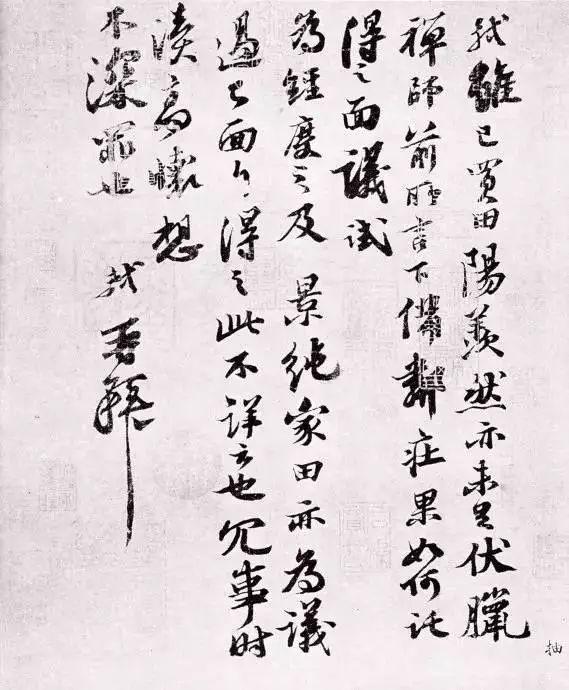 軾雖已買田陽羨然亦未足伏臘
禪師前所言下備鄰庄果如何託
得之面議試
為經度之及景純家田亦為議
過已面白得之此不詳云也冗事時
瀆高懷想
不深罪也 軾再拜
抽